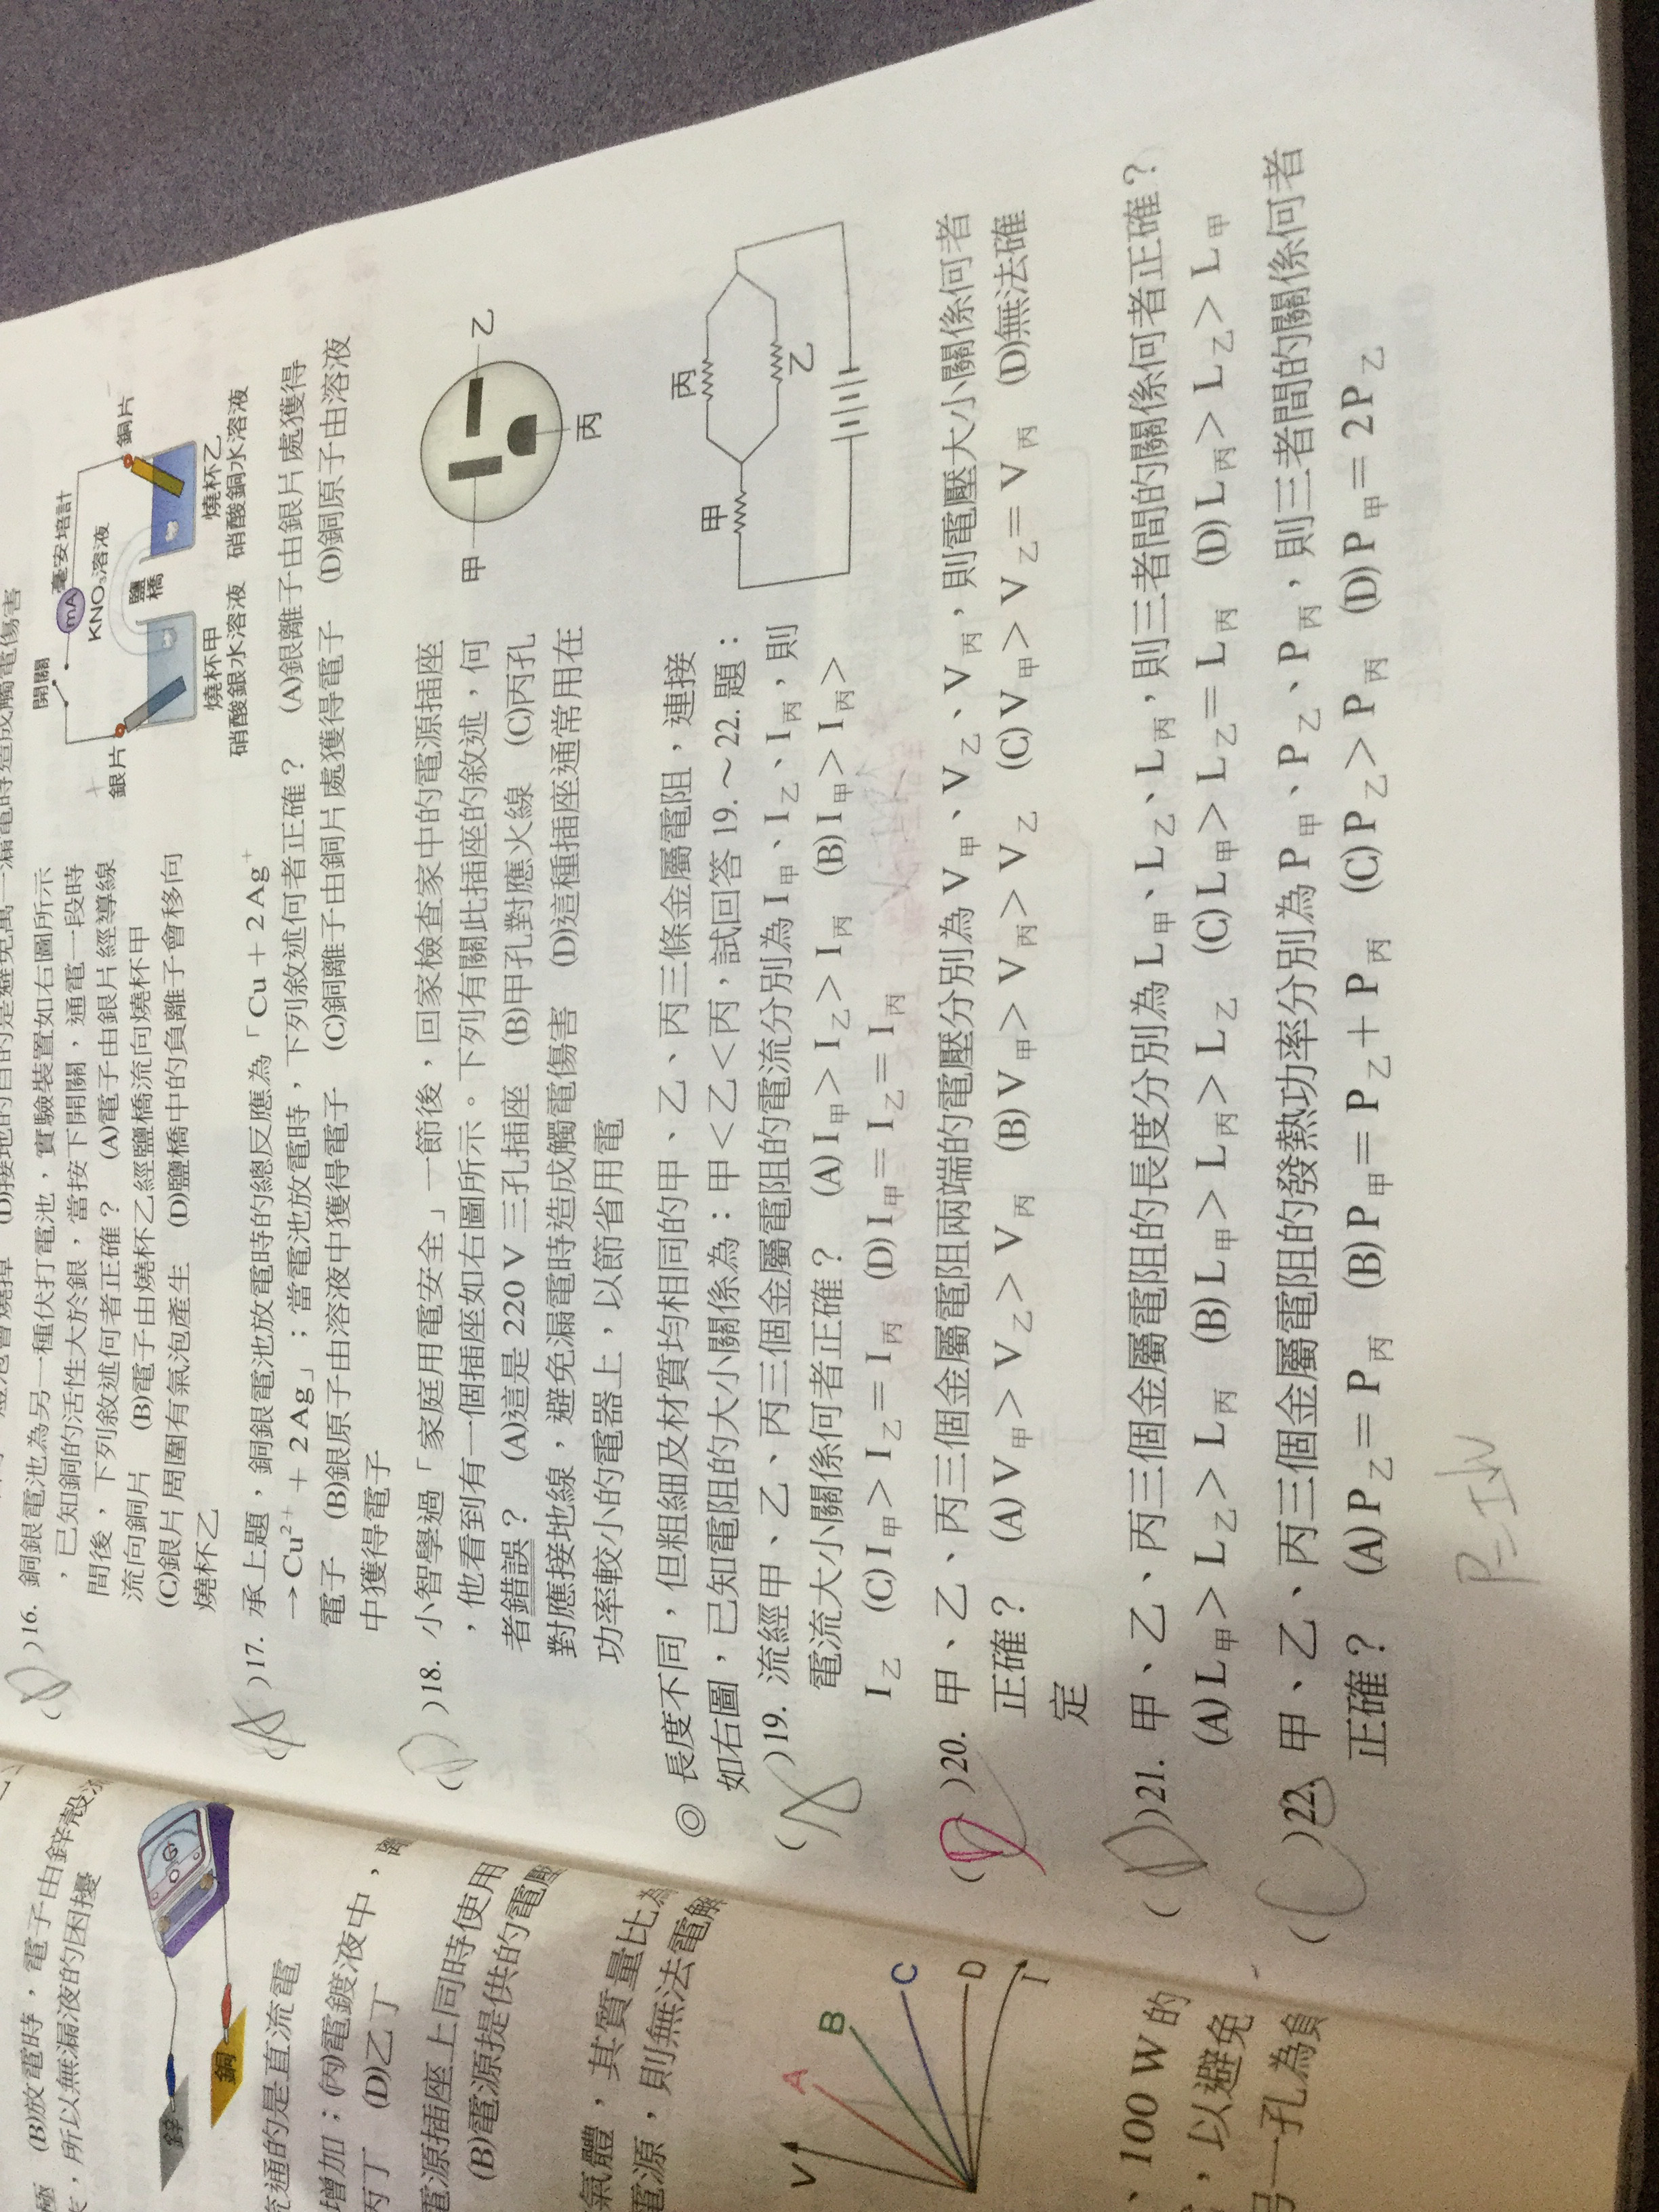 極 (B)放電時，電子由鋅殼
，所以無漏液的困擾
鋅
銅
G
流通的是直流電
增加；(丙)電鍍液中，
丙丁 (D)乙丁
電源插座上同時使用
(B)電源提供的電壓
氣體，其質量比為
電源，則無法電解
V
A
B
C
D
I
、100 W 的
，以避免
另一孔為負
(D)接地的目的是避免萬一漏電時造成觸電傷害
(D)16. 銅銀電池為另一種伏打電池，實驗裝置如右圖所示
，已知銅的活性大於銀，當按下開關，通電一段時
間後，下列敘述何者正確？ (A)電子由銀片經導線
流向銅片 (B)電子由燒杯乙經鹽橋流向燒杯甲
(C)銀片周圍有氣泡產生 (D)鹽橋中的負離子會移向
燒杯乙
開關
mA
毫安培計
KNO₃溶液
鹽橋
銀片
+
銅片
燒杯甲
硝酸銀水溶液
燒杯乙
硝酸銅水溶液
(A)17. 承上題，銅銀電池放電時的總反應為「Cu + 2 Ag⁺
→ Cu²⁺ + 2 Ag」；當電池放電時，下列敘述何者正確？ (A)銀離子由銀片處獲得
電子 (B)銀原子由溶液中獲得電子 (C)銅離子由銅片處獲得電子 (D)銅原子由溶液
中獲得電子
(D)18. 小智學過「家庭用電安全」一節後，回家檢查家中的電源插座
，他看到有一個插座如右圖所示。下列有關此插座的敘述，何
者錯誤？ (A)這是 220 V 三孔插座 (B)甲孔對應火線 (C)丙孔
對應接地線，避免漏電時造成觸電傷害 (D)這種插座通常用在
功率較小的電器上，以節省用電
甲
乙
丙
◎ 長度不同，但粗細及材質均相同的甲、乙、丙三條金屬電阻，連接
如右圖，已知電阻的大小關係為：甲＜乙＜丙，試回答 19.～22. 題：
甲
丙
乙
(A)19. 流經甲、乙、丙三個金屬電阻的電流分別為 I甲、I乙、I丙，則
電流大小關係何者正確？ (A) I甲＞I乙＞I丙 (B) I甲＞I丙＞
I乙 (C) I甲＞I乙＝I丙 (D) I甲＝I乙＝I丙
(D)20. 甲、乙、丙三個金屬電阻兩端的電壓分別為 V甲、V乙、V丙，則電壓大小關係何者
正確？ (A) V甲＞V乙＞V丙 (B) V甲＞V丙＞V乙 (C) V甲＞V乙＝V丙 (D)無法確
定
(D)21. 甲、乙、丙三個金屬電阻的長度分別為 L甲、L乙、L丙，則三者間的關係何者正確？
(A) L甲＞L乙＞L丙 (B) L甲＞L丙＞L乙 (C) L甲＞L乙＝L丙 (D) L丙＞L乙＞L甲
(C)22. 甲、乙、丙三個金屬電阻的發熱功率分別為 P甲、P乙、P丙，則三者間的關係何者
正確？ (A) P乙＝P丙 (B) P甲＝P乙＋P丙 (C) P乙＞P丙 (D) P甲＝2P乙
P=IV